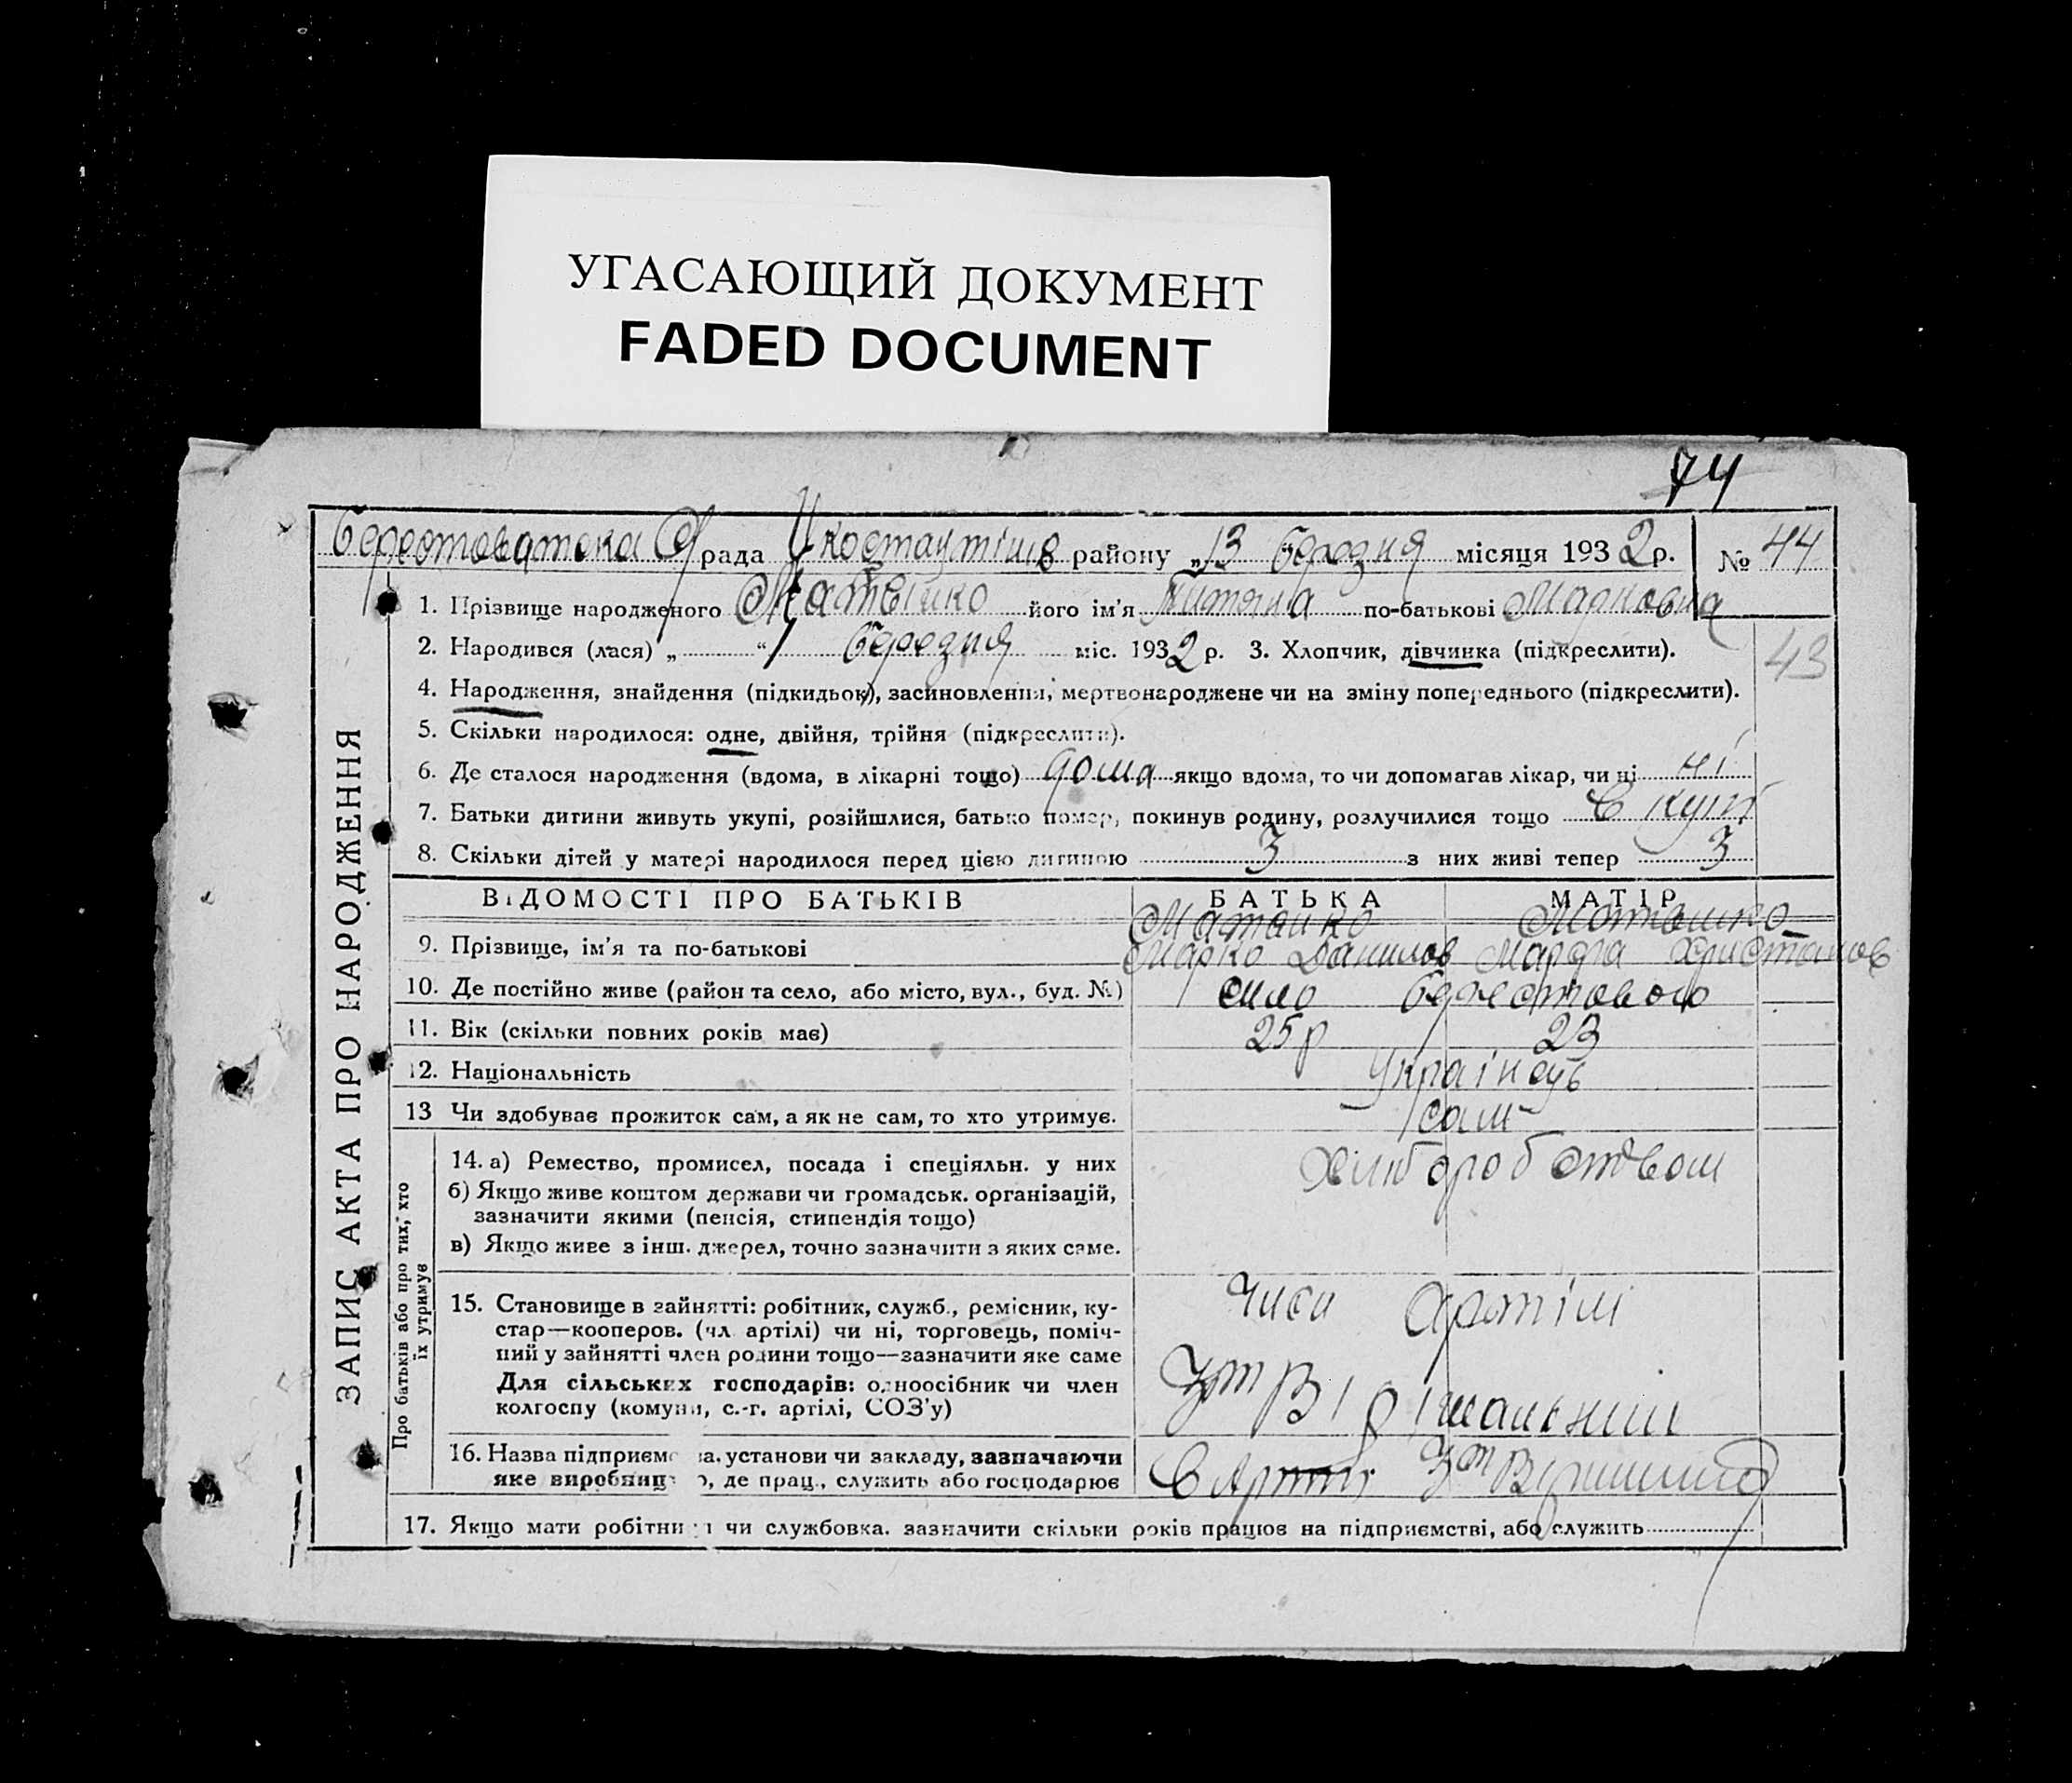 УГАСАЮЩИЙ ДОКУМЕНТ
FADED DOCUMENT
74
Берестоватска С/рада району „13 березня місяця 1932 р. № 44
1. Прізвище народженого його ім'я по-батькові Марковна
2. Народився (лася) „ “ 1 березня міс. 1932 р. 3. Хлопчик, дівчинка (підкреслити). 43
4. Народження, знайдення (підкидьок), засиновлення, мертвонароджене чи на зміну попереднього (підкреслити).
5. Скільки народилося: одне, двійня, трійня (підкреслити).
6. Де сталося народження (вдома, в лікарні тощо) дома якщо вдома, то чи допомагав лікар, чи ні ні
7. Батьки дитини живуть укупі, розійшлися, батько помер, покинув родину, розлучилися тощо в купі
8. Скільки дітей у матері народилося перед цією дитиною 3 з них живі тепер 3
ВІДОМОСТІ ПРО БАТЬКІВ БАТЬКА МАТІР
9. Прізвище, ім'я та по-батькові Марко Данилов Марфа
10. Де постійно живе (район та село, або місто, вул., буд. №) село Берестового
11. Вік (скільки повних років має) 25 р 23
12. Національність Українсць
13 Чи здобуває прожиток сам, а як не сам, то хто утримує. сам
14. а) Ремество, промисел, посада і спеціяльн. у них Хліборобством
б) Якщо живе коштом держави чи громадськ. організацій,
зазначити якими (пенсія, стипендія тощо)
в) Якщо живе з інш. джерел, точно зазначити з яких саме.
15. Становище в зайнятті: робітник, служб., ремісник, ку-
стар—кооперов. (чл. артілі) чи ні, торговець, поміч-
ний у зайнятті член родини тощо—зазначити яке саме
Для сільських господарів: одноосібник чи член
колгоспу (комуни, с.-г. артілі, СОЗ'у)
член Артілі
16. Назва підприємс ва, установи чи закладу, зазначаючи
яке виробниц о, де прац., служить або господарює
17. Якщо мати робітни я чи службовка, зазначити скільки років працює на підприємстві, або служить
ЗАПИС АКТА ПРО НАРОДЖЕННЯ
Про батьків або про тих, хто
їх утримує